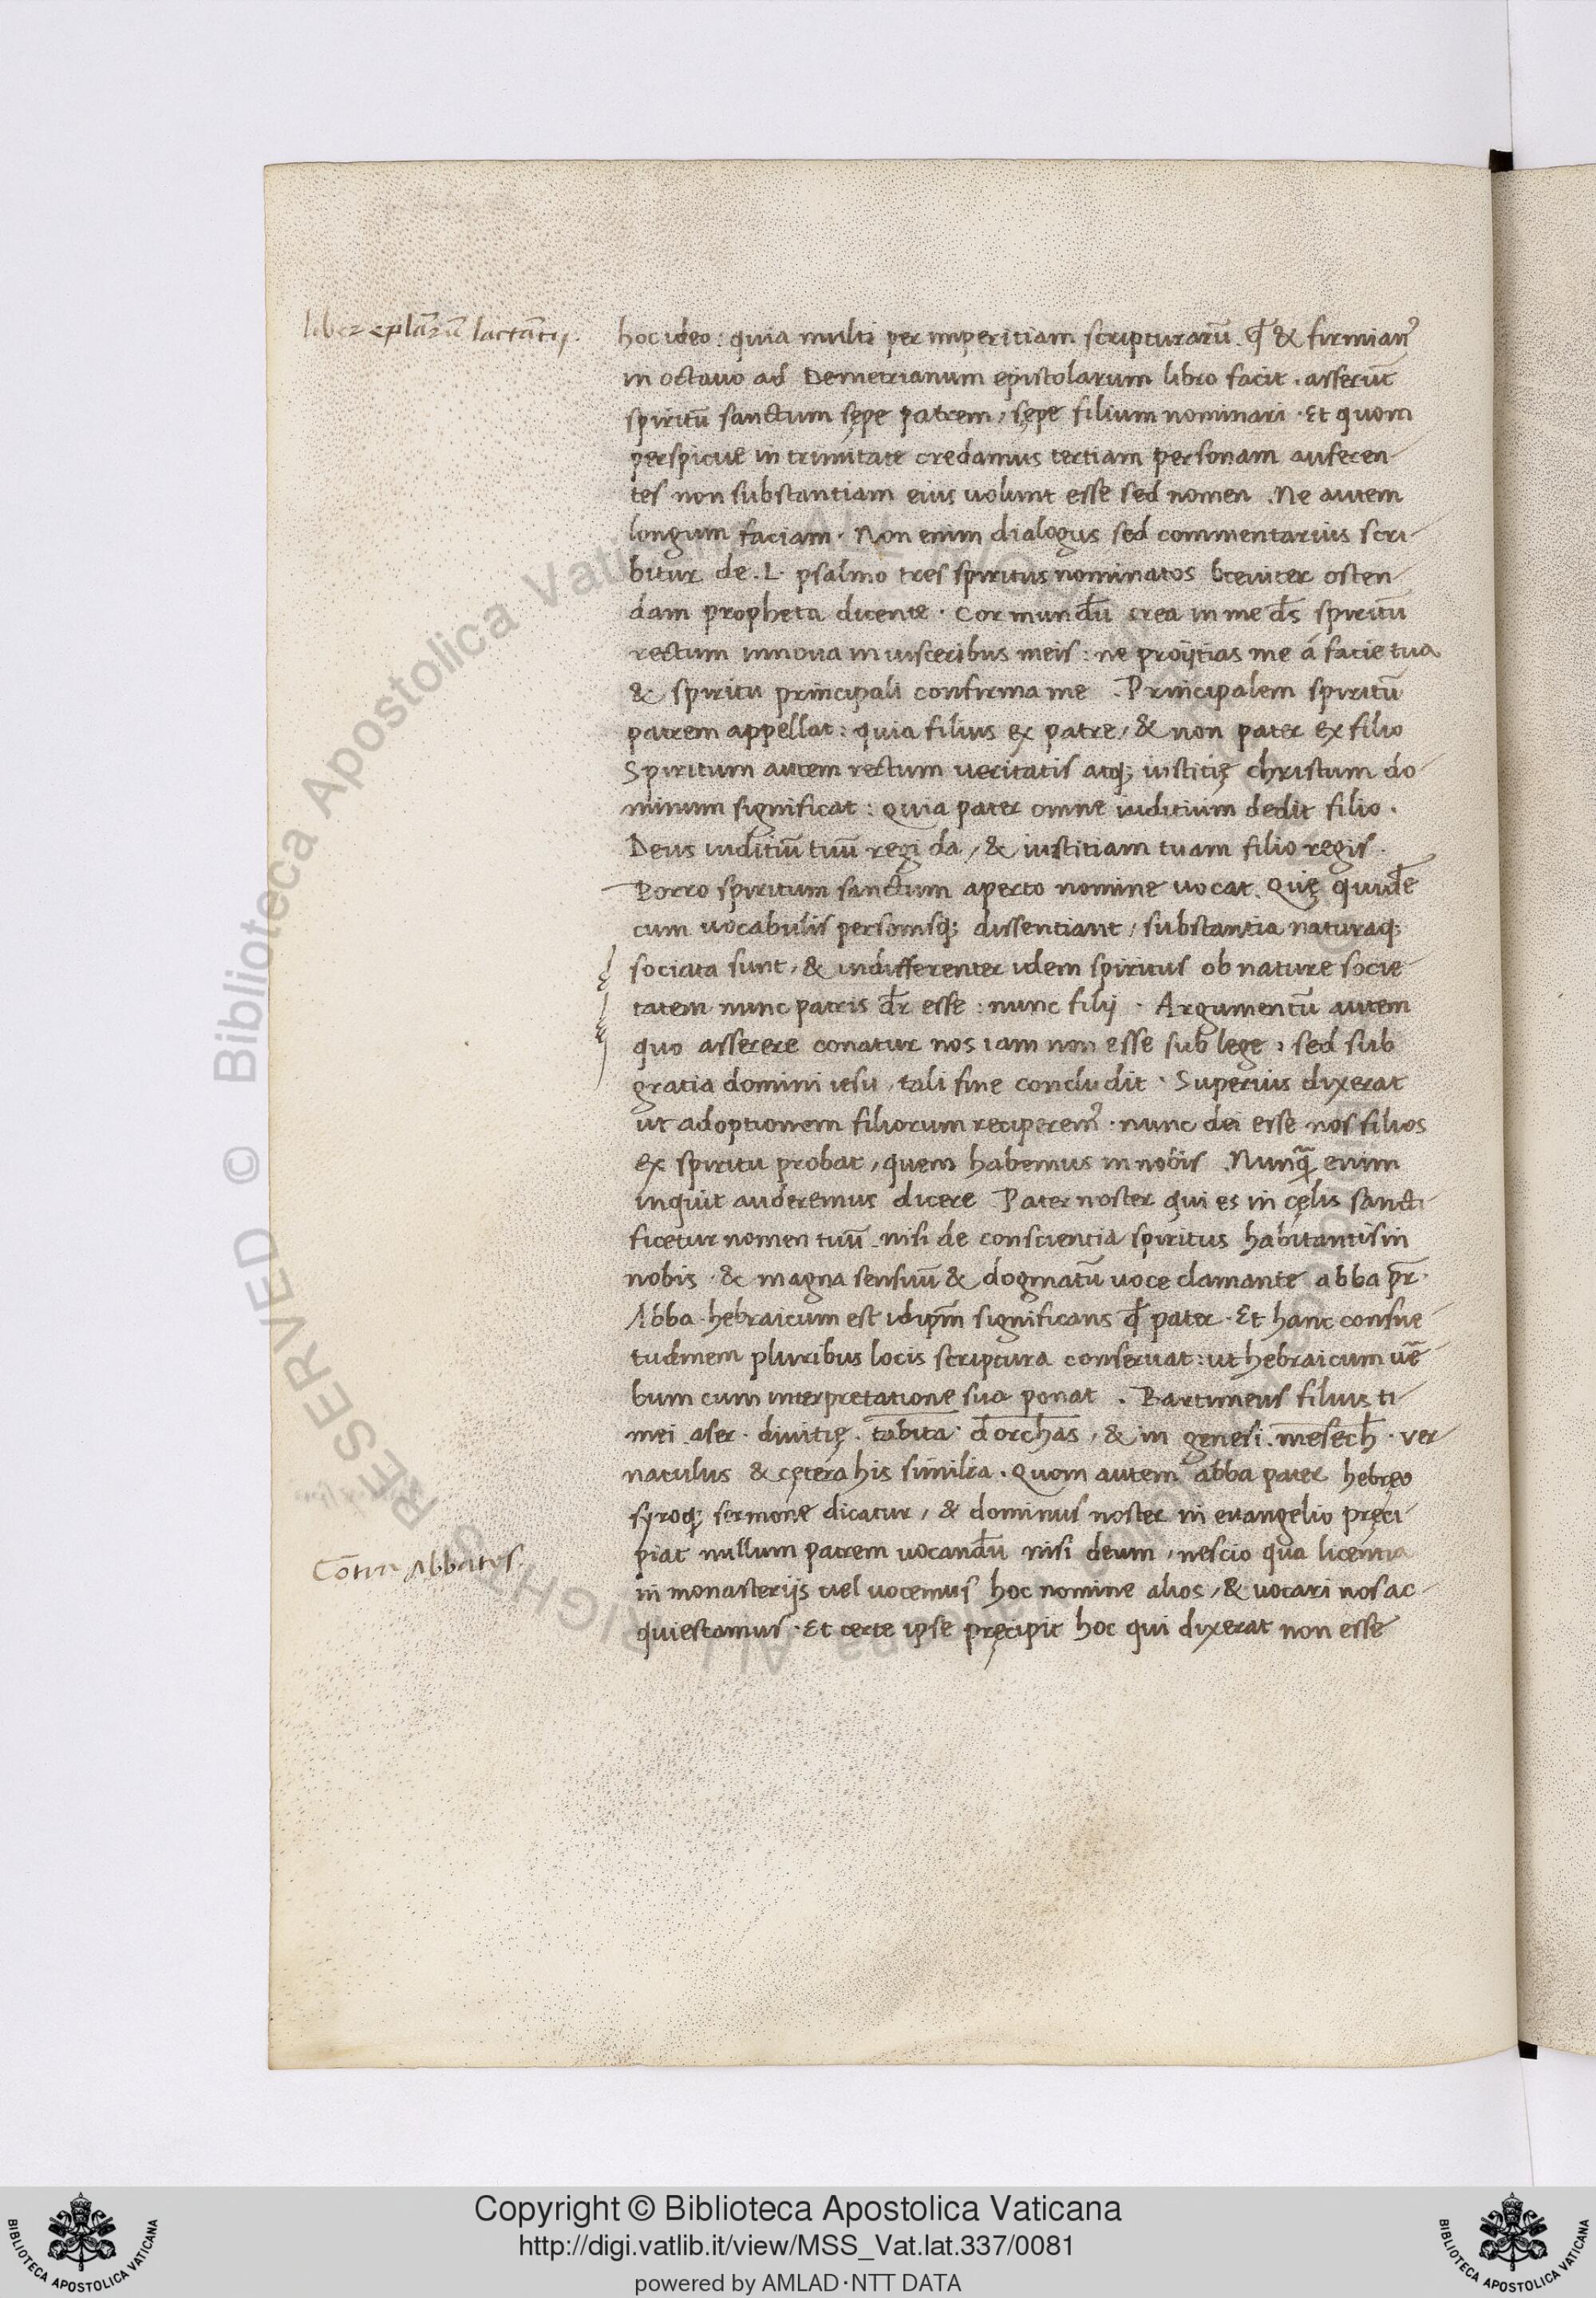 liber eplāꝝ lactātij.
hoc ideo: quia multi per imperitiam scripturarū. qđ & firmianꝰ
in octauo ad Demetrianum epistolarum libro facit. asserūt
spiritū sanctum sępe patrem, sępe filium nominari. Et quom
perspicue in trinitate credamus tertiam personam auferen-
tes non substantiam eius uolunt esse sed nomen. Ne autem
longum faciam. Non enim dialogus sed commentarius scri-
bitur de. L. psalmo tres spiritus nominatos breuiter osten-
dam propheta dicente. Cor mundū crea in me ds̄ spiritū
rectum innoua in uisceribus meis: ne proijtias me á facie tua
& spiritu principali confirma me. Principalem spiritū
patrem appellat: quia filius ex patre, & non pater ex filio
Spiritum autem rectum ueritatis atq; iustitię christum do-
minum significat: quia pater omne iuditium dedit filio.
Deus iuditiū tuū regi da, & iustitiam tuam filio regis.
Porro spiritum sanctum aperto nomine uocat. Quę quidē
cum uocabulis personisq; dissentiant, substantia naturaq;
sociata sunt, & indifferenter idem spiritus ob nature socie-
tatem nunc patris dr̄ esse: nunc filij. Argumentū autem
quo asserere conatur nos iam non esse sub lege, sed sub
gratia domini iesu, tali fine concludit. Superius dixerat
ut adoptionem filiorum reciperemꝰ. nunc dei esse nos filios
ex spiritu probat, quem habemus in nobis. Nunq̄ enim
inquit auderemus dicere Pater noster qui es in cęlis sancti
ficetur nomen tuū. nisi de conscientia spiritus habitantis in
nobis. & magna sensuū & dogmatū uoce clamante abba pr̄.
Abba hebraicum est idipm̄ significans qđ pater. Et hanc consue-
tudinem pluribus locis scriptura conseruat: ut hebraicum uē
bum cum interpretatione sua ponat. Bartimeus filius ti-
mei. aser. diuitię. tabita. dorchas, & in genesi. mesech. uer
naculus & cętera his similia. Quom autem abba pater hebręo
syroq; sermone dicatur, & dominus noster in euangelio pręci-
piat nullum patrem uocandū nisi deum, nescio qua licentia
Cōtra Abbates.
in monasterijs uel uocemus hoc nomine alios, & uocari nos ac-
quiescamus. Et certe ipse pręcipit hoc qui dixerat non esse
© Biblioteca Apostolica Vaticana ALL RIGHTS RESERVED
Copyright © Biblioteca Apostolica Vaticana
http://digi.vatlib.it/view/MSS_Vat.lat.337/0081
powered by AMLAD·NTT DATA
BIBLIOTECA APOSTOLICA VATICANA
BIBLIOTECA APOSTOLICA VATICANA